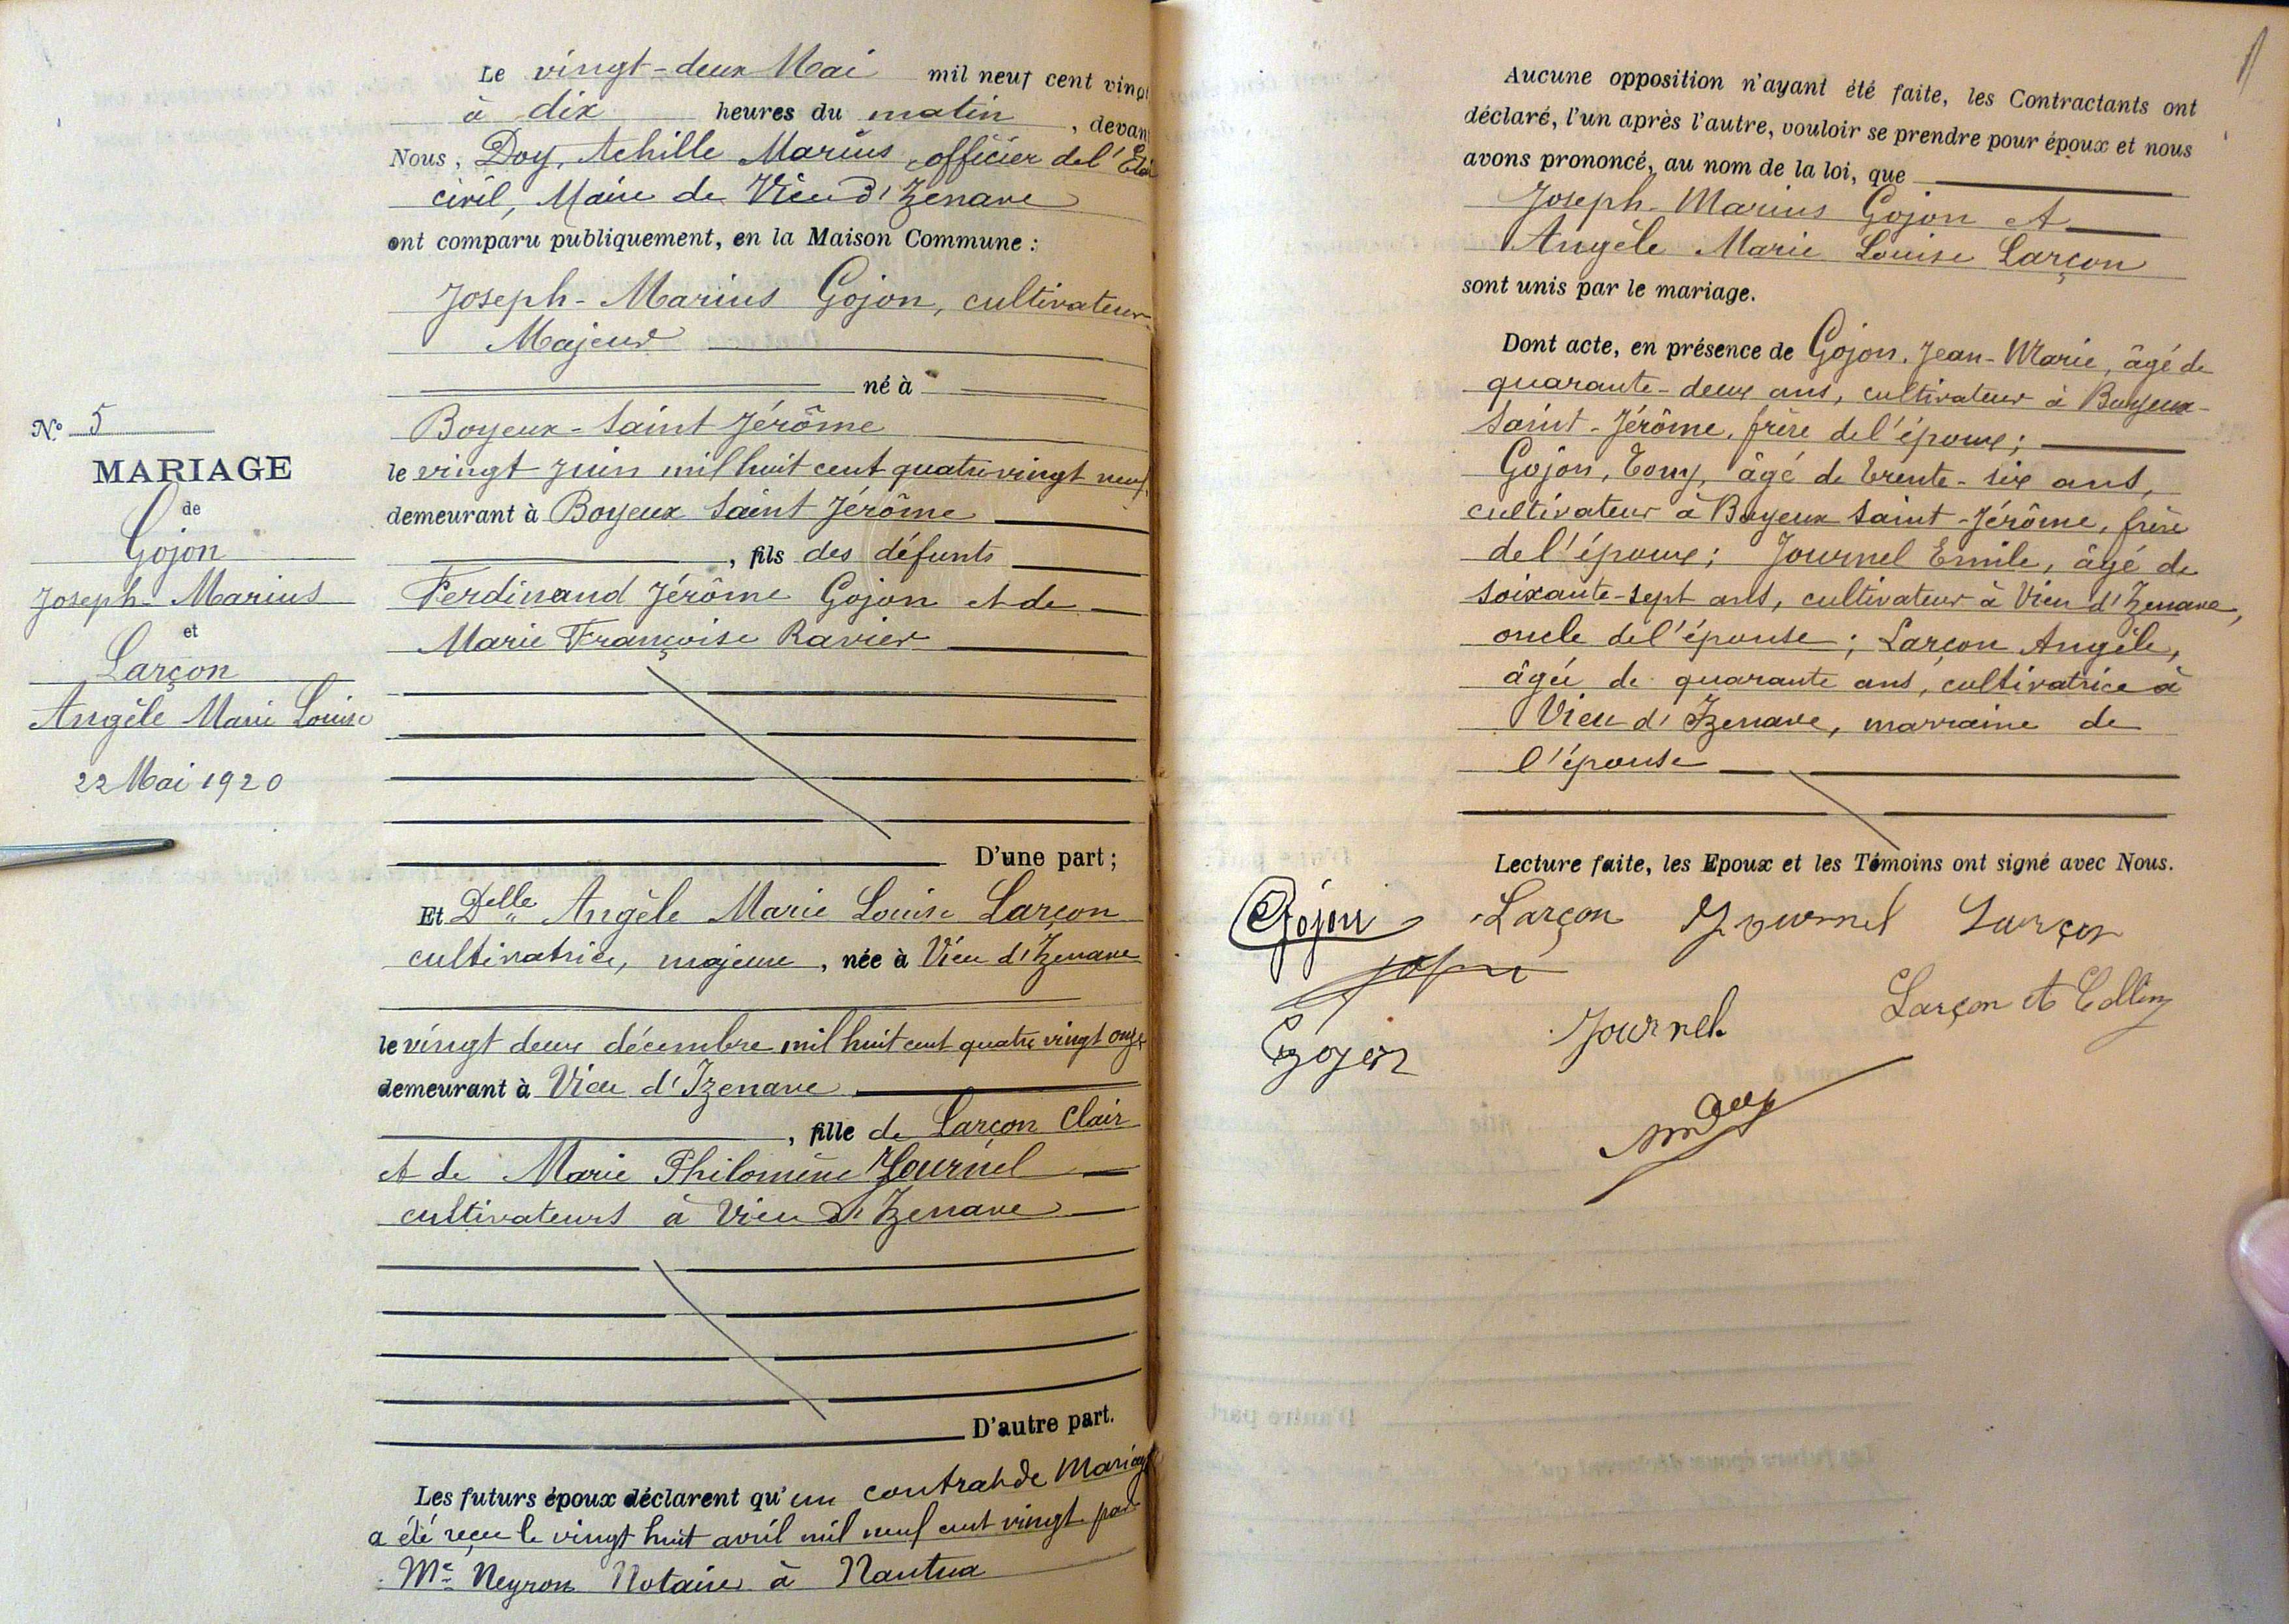 N° 5
MARIAGE
de
Gojon
Joseph-Marius
et
Larçon
Angèle Marie Louise
22 Mai 1920
Le vingt-deux Mai mil neuf cent vingt
à dix heures du matin, devant
Nous, Doy, Achille Marius, officier de l'État
civil, Maire de Vieu d'Izenave
ont comparu publiquement, en la Maison Commune :
Joseph-Marius Gojon, cultivateur
Majeur
né à
Boyeux-Saint Jérôme
le vingt juin mil huit cent quatre vingt neuf
demeurant à Boyeux Saint Jérôme
, fils des défunts
Ferdinand Jérôme Gojon et de
Marie Françoise Ravier
D'une part ;
Et Delle Angèle Marie Louise Larçon
cultivatrice, majeure, née à Vieu d'Izenave
le vingt deux décembre mil huit cent quatre vingt onze
demeurant à Vieu d'Izenave
, fille de Larçon Clair
et de Marie Philomène Journel
cultivateurs à Vieu d'Izenave
D'autre part.
Les futurs époux déclarent qu'un contrat de Mariage
a été reçu le vingt huit avril mil neuf cent vingt par
Me Neyron Notaire à Nantua
Aucune opposition n'ayant été faite, les Contractants ont
déclaré, l'un après l'autre, vouloir se prendre pour époux et nous
avons prononcé, au nom de la loi, que
Joseph-Marius Gojon et
Angèle Marie Louise Larçon
sont unis par le mariage.
Dont acte, en présence de Gojon, Jean-Marie, âgé de
quarante-deux ans, cultivateur à Boyeux-
Saint-Jérôme, frère de l'époux ;
Gojon, Tony, âgé de trente-six ans,
cultivateur à Boyeux Saint-Jérôme, frère
de l'époux ; Journel Emile, âgé de
soixante-sept ans, cultivateur à Vieu d'Izenave,
oncle de l'épouse ; Larçon Angèle,
âgée de quarante ans, cultivatrice à
Vieu d'Izenave, marraine de
l'épouse
Lecture faite, les Epoux et les Témoins ont signé avec Nous.
Gojon Larçon Journel Larçon
Gojon Journel Larçon A
Doy